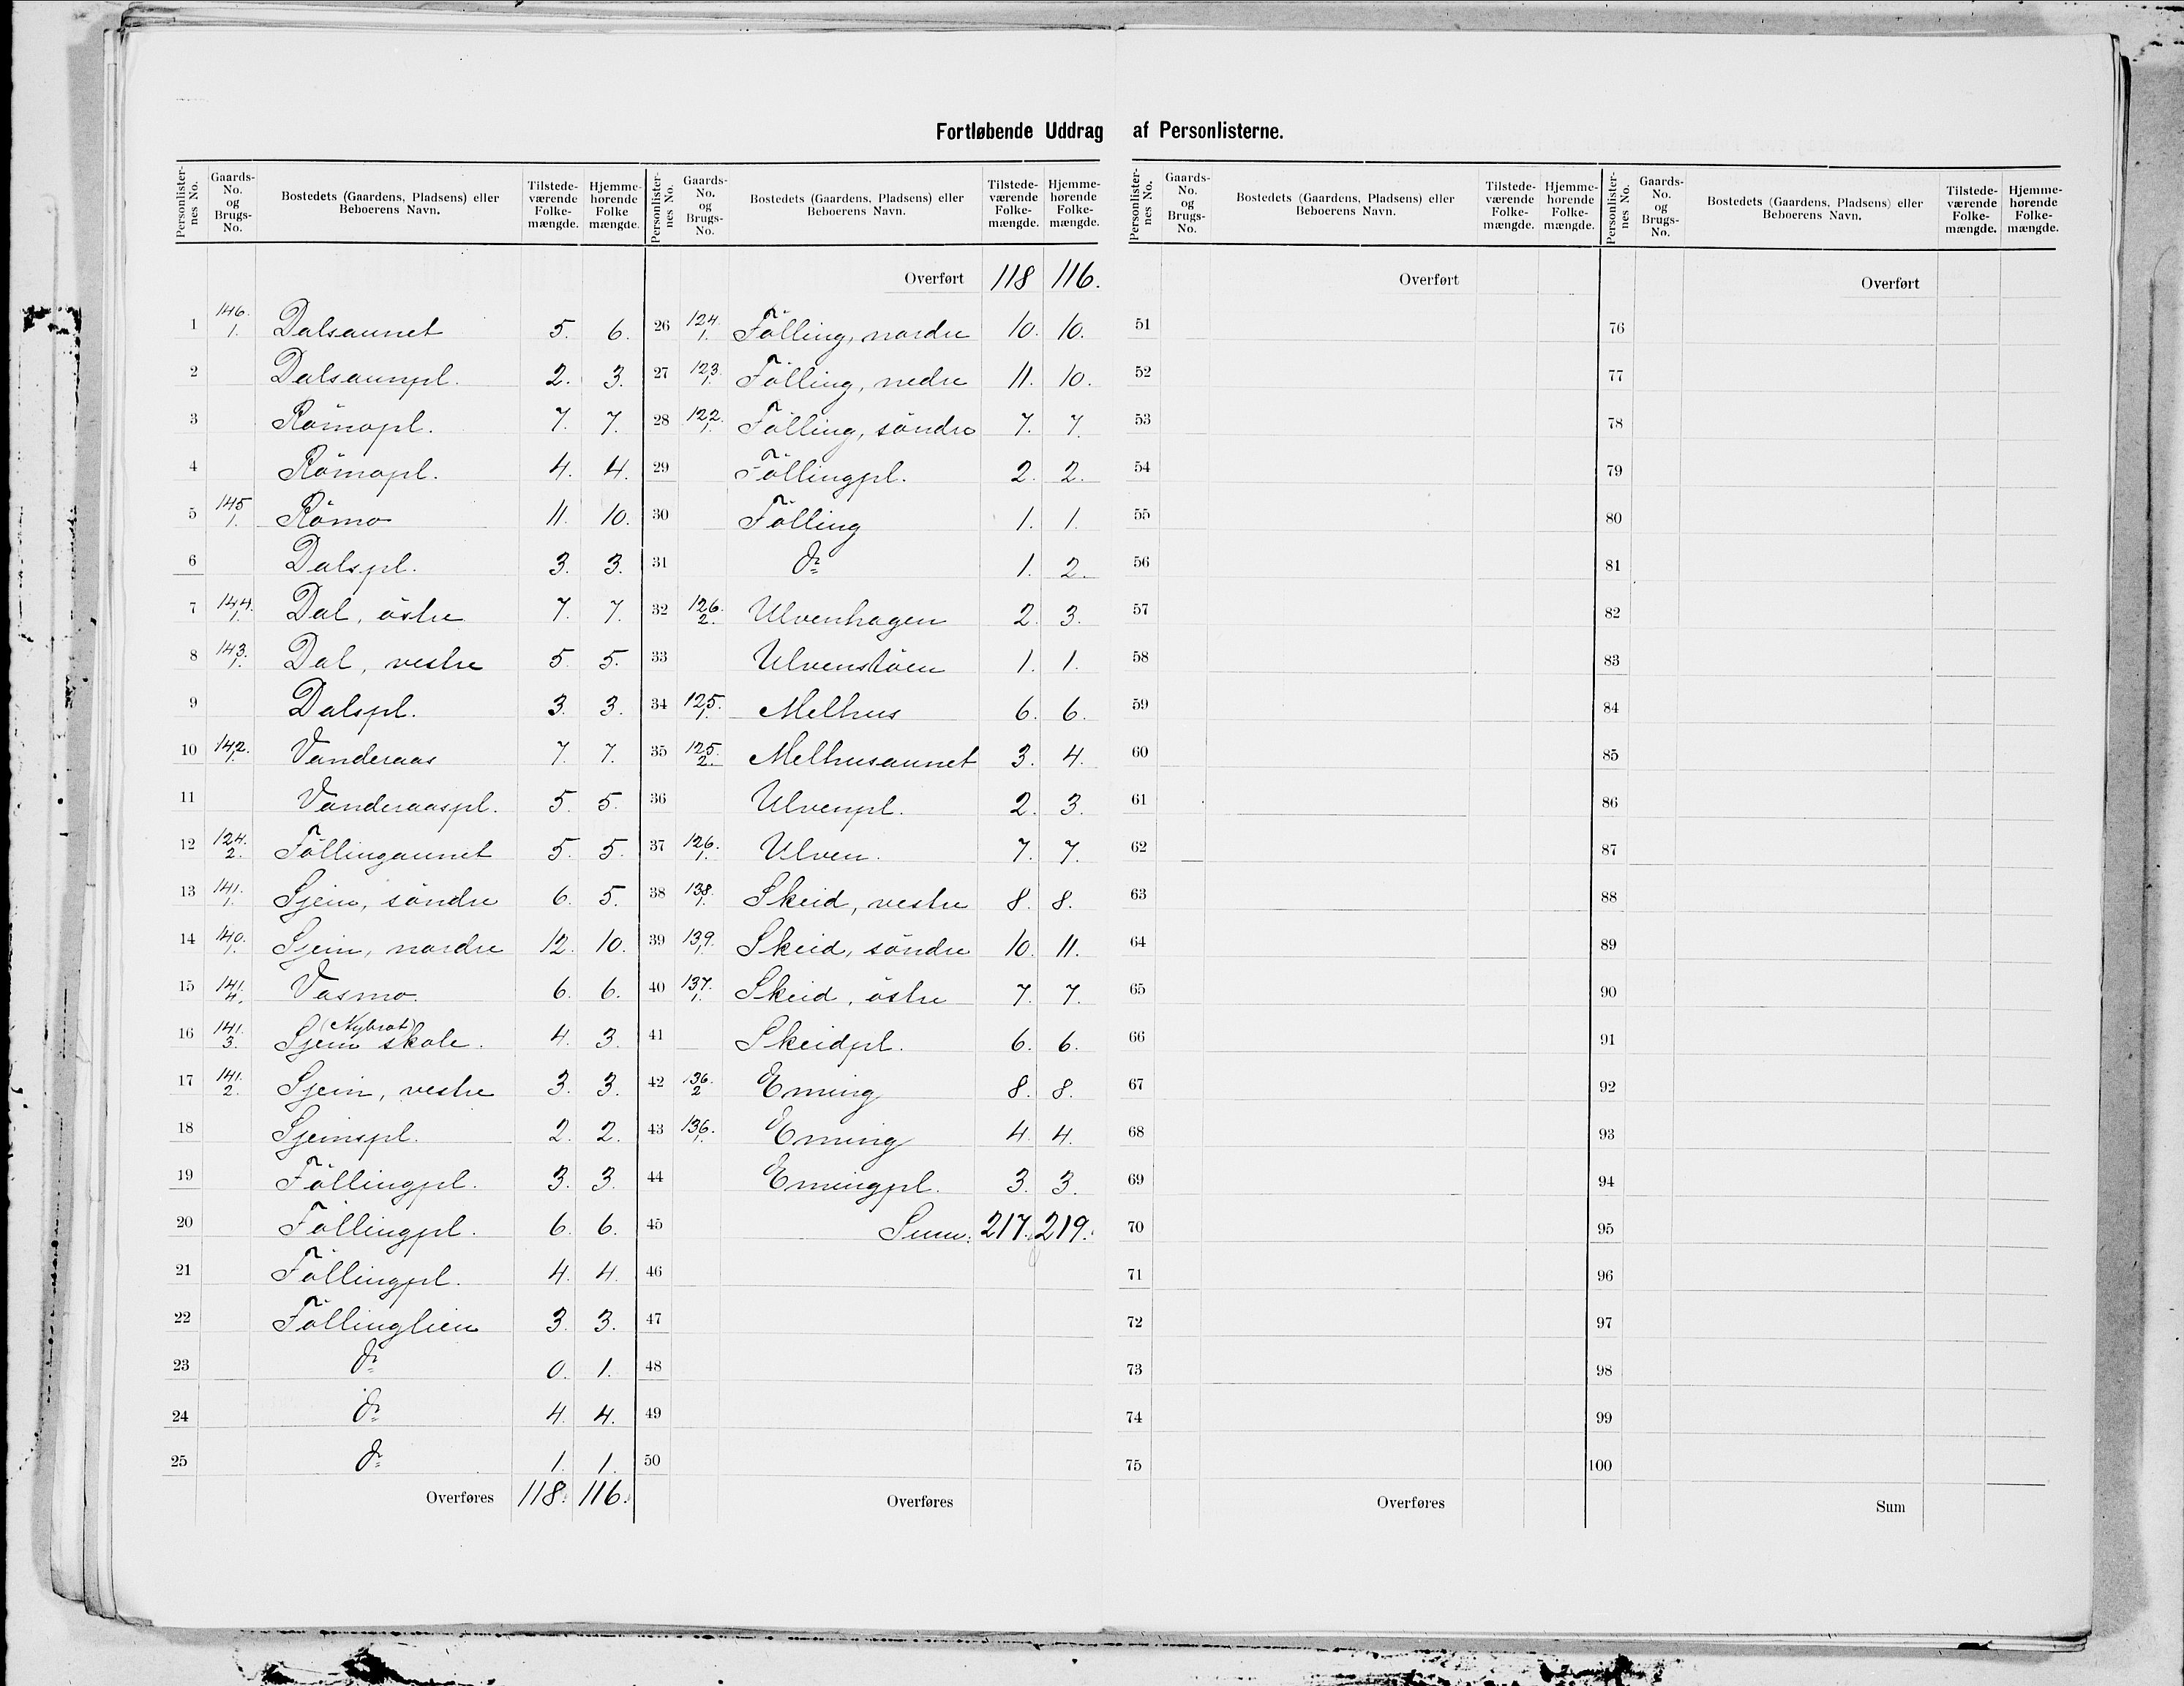 Fortløbende Uddrag af Personlisterne.
Personlister-nes No. | Gaards-No. og Brugs-No. | Bostedets (Gaardens, Pladsens) eller Beboerens Navn. | Tilstede-værende Folke-mængde. | Hjemme-hørende Folke mængde.
1 146. 1. Dalsaunet 5. 6.
2 Dalsaunpl. 2. 3.
3 Römopl. 7. 7.
4 Römopl. 4. 4.
5 145 1. Römo 11. 10.
6 Dalspl. 3. 3.
7 144. 1. Dal, östre 7. 7.
8 143. 1. Dal, vestre 5. 5.
9 Dalspl. 3. 3.
10 142. 1. Vanderaas 7. 7.
11 Vanderaaspl. 5. 5.
12 124. 2. Föllingaunet 5. 5.
13 141. 1. Sjem, söndre 6. 5.
14 140. 1. Sjem, nordre 12. 10.
15 141. 4. Vasmo. 6. 6.
16 141. 3. (Nybrot) Sjem skole. 4. 3.
17 141. 2. Sjem, vestre 3. 3.
18 Sjemspl. 2. 2.
19 Föllingpl. 3. 3.
20 Föllingpl. 6. 6.
21 Föllingpl. 4. 4.
22 Föllinglien 3. 3.
23 do 0. 1.
24 do 4. 4.
25 do 1. 1.
Overføres 118. 116.
Personlister-nes No. | Gaards-No. og Brugs-No. | Bostedets (Gaardens, Pladsens) eller Beboerens Navn. | Tilstede-værende Folke-mængde. | Hjemme-hørende Folke-mængde.
Overført 118 116.
26 124. 1. Fölling, nordre 10. 10.
27 123. 1. Fölling, nedre 11. 10.
28 122. 1. Fölling, söndre 7. 7.
29 Föllingpl. 2. 2.
30 Fölling 1. 1.
31 do 1. 2.
32 126. 2. Ulvenhagen 2. 3.
33 Ulvenstöen 1. 1.
34 125. 1. Melhus 6. 6.
35 125. 2. Melhusaunet 3. 4.
36 Ulvenpl. 2. 3.
37 126. 1. Ulven. 7. 7.
38 138. 1. Skeid, vestre 8. 8.
39 139. 1. Skeid, söndre 10. 11.
40 137. 1. Skeid, östre 7. 7.
41 Skeidpl. 6. 6.
42 136. 2 Eming 8. 8.
43 136. 1. Eming 4. 4.
44 Emingpl. 3. 3.
45 Sum. 217. 219.
46
47
48
49
50
Overføres
Personlister-nes No. | Gaards-No. og Brugs-No. | Bostedets (Gaardens, Pladsens) eller Beboerens Navn. | Tilstede-værende Folke-mængde. | Hjemme-hørende Folke-mængde.
Overført
51
52
53
54
55
56
57
58
59
60
61
62
63
64
65
66
67
68
69
70
71
72
73
74
75
Overføres
Personlister-nes No. | Gaards-No. og Brugs-No. | Bostedets (Gaardens, Pladsens) eller Beboerens Navn. | Tilstede-værende Folke-mængde. | Hjemme-hørende Folke-mængde.
Overført
76
77
78
79
80
81
82
83
84
85
86
87
88
89
90
91
92
93
94
95
96
97
98
99
100
Sum